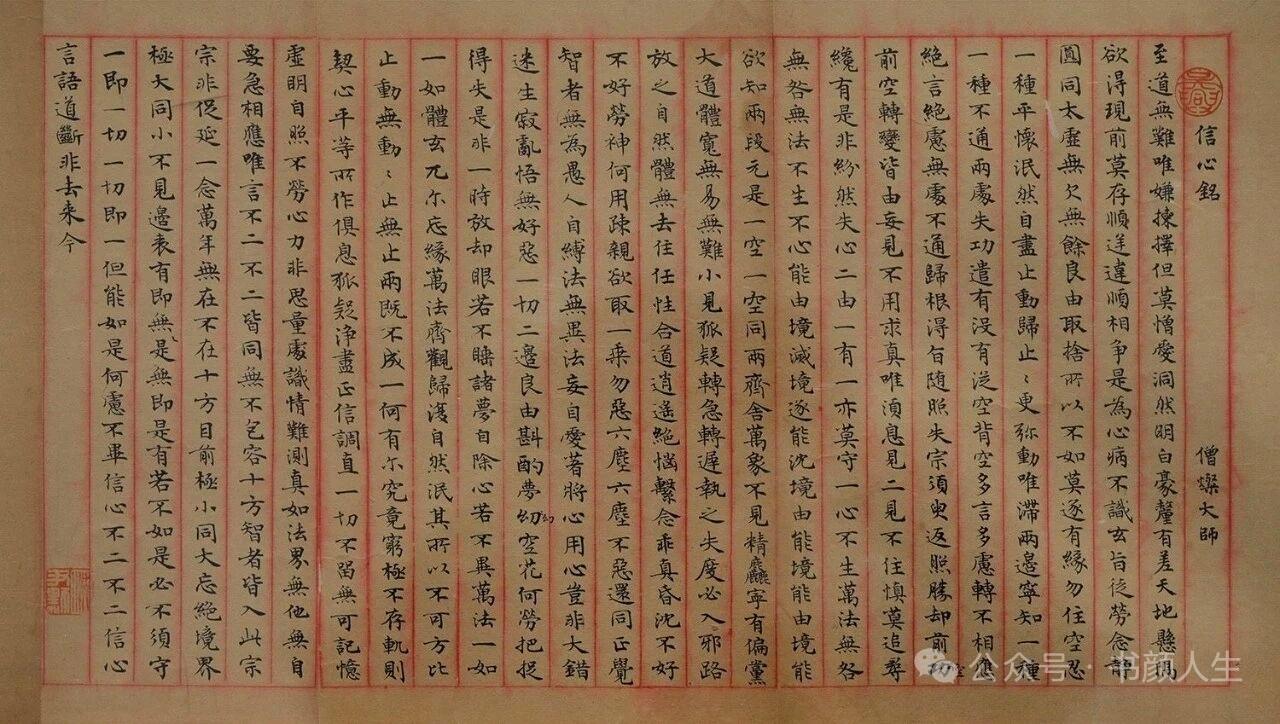 信心銘 僧燦大師
至道無難唯嫌揀擇但莫憎愛洞然明白豪釐有差天地懸隔
欲得現前莫存順逆違順相争是為心病不識玄旨徒勞念靜
圓同太虛無欠無餘良由取捨所以不如莫逐有緣勿住空忍
一種平懷泯然自盡止動歸止〻更弥動唯滯兩邊寧知一種
一種不通兩處失功遣有没有從空背空多言多慮轉不相應
絕言絕慮無處不通歸根得旨随照失宗須臾返照勝却前空
前空轉變皆由妄見不用求真唯須息見二見不住慎莫追尋
纔有是非紛然失心二由一有一亦莫守一心不生萬法無咎
無咎無法不生不心能由境滅境逐能沈境由能境能由境能
欲知兩段元是一空一空同兩齊含萬象不見精麤寧有偏黨
大道體寬無易無難小見狐疑轉急轉遲執之失度必入邪路
放之自然體無去住任性合道逍遥絕惱繫念乖真昏沈不好
不好勞神何用疎親欲取一乘勿惡六塵六塵不惡還同正覺
智者無為愚人自縛法無異法妄自愛著將心用心豈非大錯
迷生寂亂悟無好惡一切二邊良由斟酌夢幻空花何勞把捉
得失是非一時放却眼若不睡諸夢自除心若不異萬法一如
一如體玄兀尔忘緣萬法齊觀歸復自然泯其所以不可方比
止動無動〻止無止兩既不成一何有尔究竟窮極不存軌則
契心平等所作俱息狐疑淨盡正信調直一切不留無可記憶
虛明自照不勞心力非思量處識情難測真如法界無他無自
要急相應唯言不二不二皆同無不包容十方智者皆入此宗
宗非促延一念萬年無在不在十方目前極小同大忘絕境界
極大同小不見邊表有即是無無即是有若不如是必不須守
一即一切一切即一但能如是何慮不畢信心不二不二信心
言語道斷非去来今
公众号·书颜人生